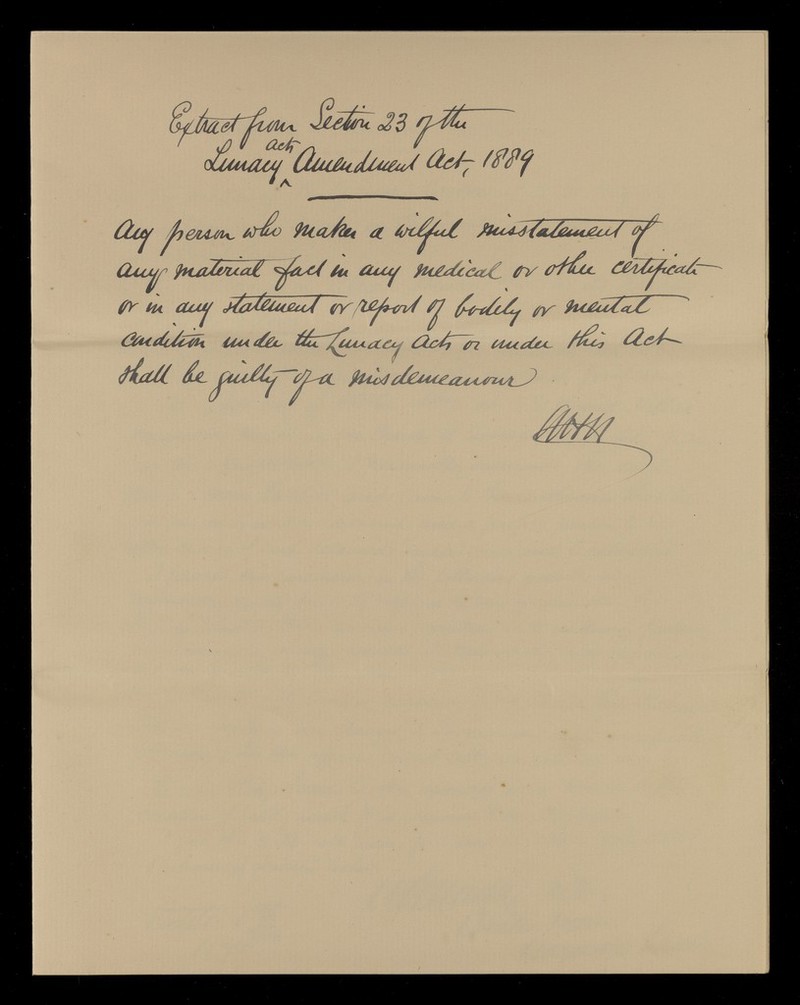 Extract from Section 23 of the
Lunacy Acts Amendment Act, 1889
Any person who makes a wilful misstatement of
any material fact in any medical or other certificate
or in any statement or report of bodily or mental
condition under the Lunacy Acts or under this Act
shall be guilty of a misdemeanour